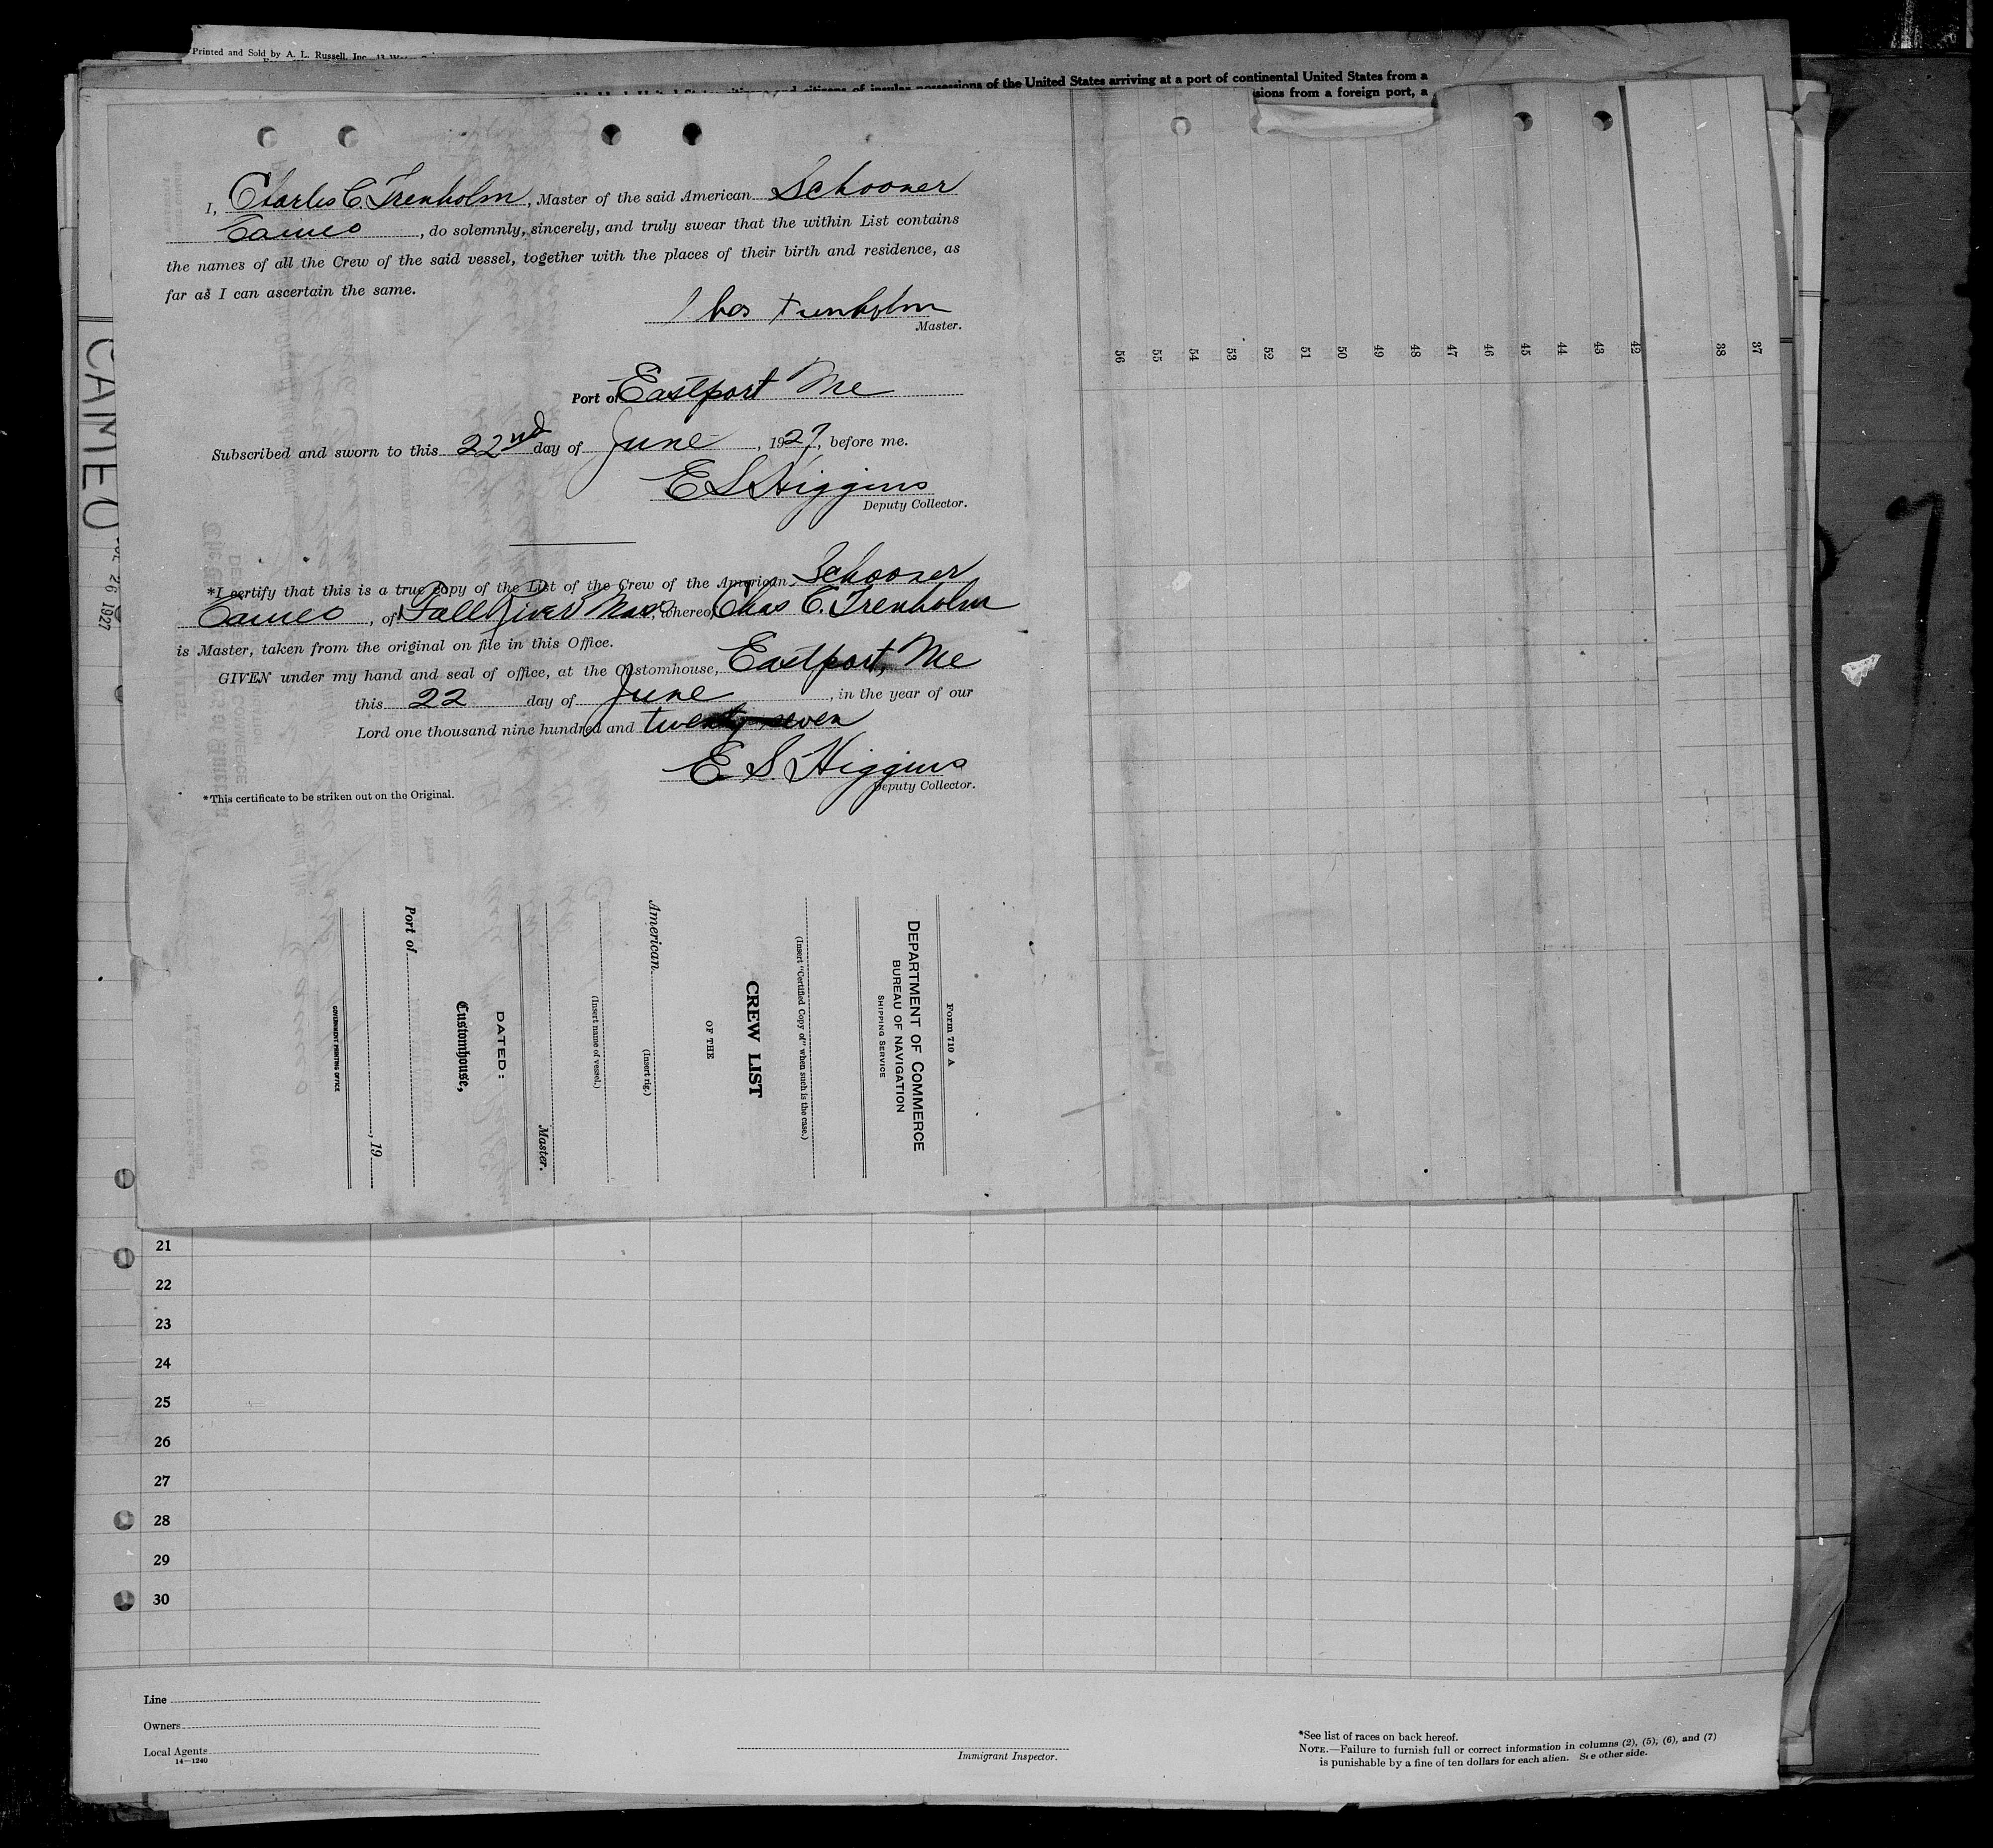 Printed and Sold by A. L. Russell, Inc.
of insular possessions of the United States arriving at a port of continental United States from a
sions from a foreign port, a
I, Charles C. Trenholm, Master of the said American Schooner
Cameo, do solemnly, sincerely, and truly swear that the within List contains
the names of all the Crew of the said vessel, together with the places of their birth and residence, as
far as I can ascertain the same.
Chas Trenholm
Master.
Port of Eastport Me
Subscribed and sworn to this 22nd day of June, 1927, before me.
E S Higgins
Deputy Collector.
*I certify that this is a true copy of the List of the Crew of the American Schooner
Cameo, of Fall River Mass, whereof Chas C. Trenholm
is Master, taken from the original on file in this Office.
GIVEN under my hand and seal of office, at the Customhouse, Eastport, Me
this 22 day of June, in the year of our
Lord one thousand nine hundred and twenty seven
E. S. Higgins
Deputy Collector.
*This certificate to be striken out on the Original.
Form 710 A
DEPARTMENT OF COMMERCE
BUREAU OF NAVIGATION
SHIPPING SERVICE
(Insert "Certified Copy of" when such is the case.)
CREW LIST
OF THE
American
(Insert rig.)
(Insert name of vessel.)
Master.
DATED:
Customhouse,
Port of
, 19
GOVERNMENT PRINTING OFFICE
56 55 54 53 52 51 50 49 48 47 46 45 44 43 42 38 37
CAMEO
26 1927
7
21
22
23
24
25
26
27
28
29
30
Line
Owners
Local Agents
14—1240
Immigrant Inspector.
*See list of races on back hereof.
NOTE.—Failure to furnish full or correct information in columns (2), (5), (6), and (7)
is punishable by a fine of ten dollars for each alien. See other side.